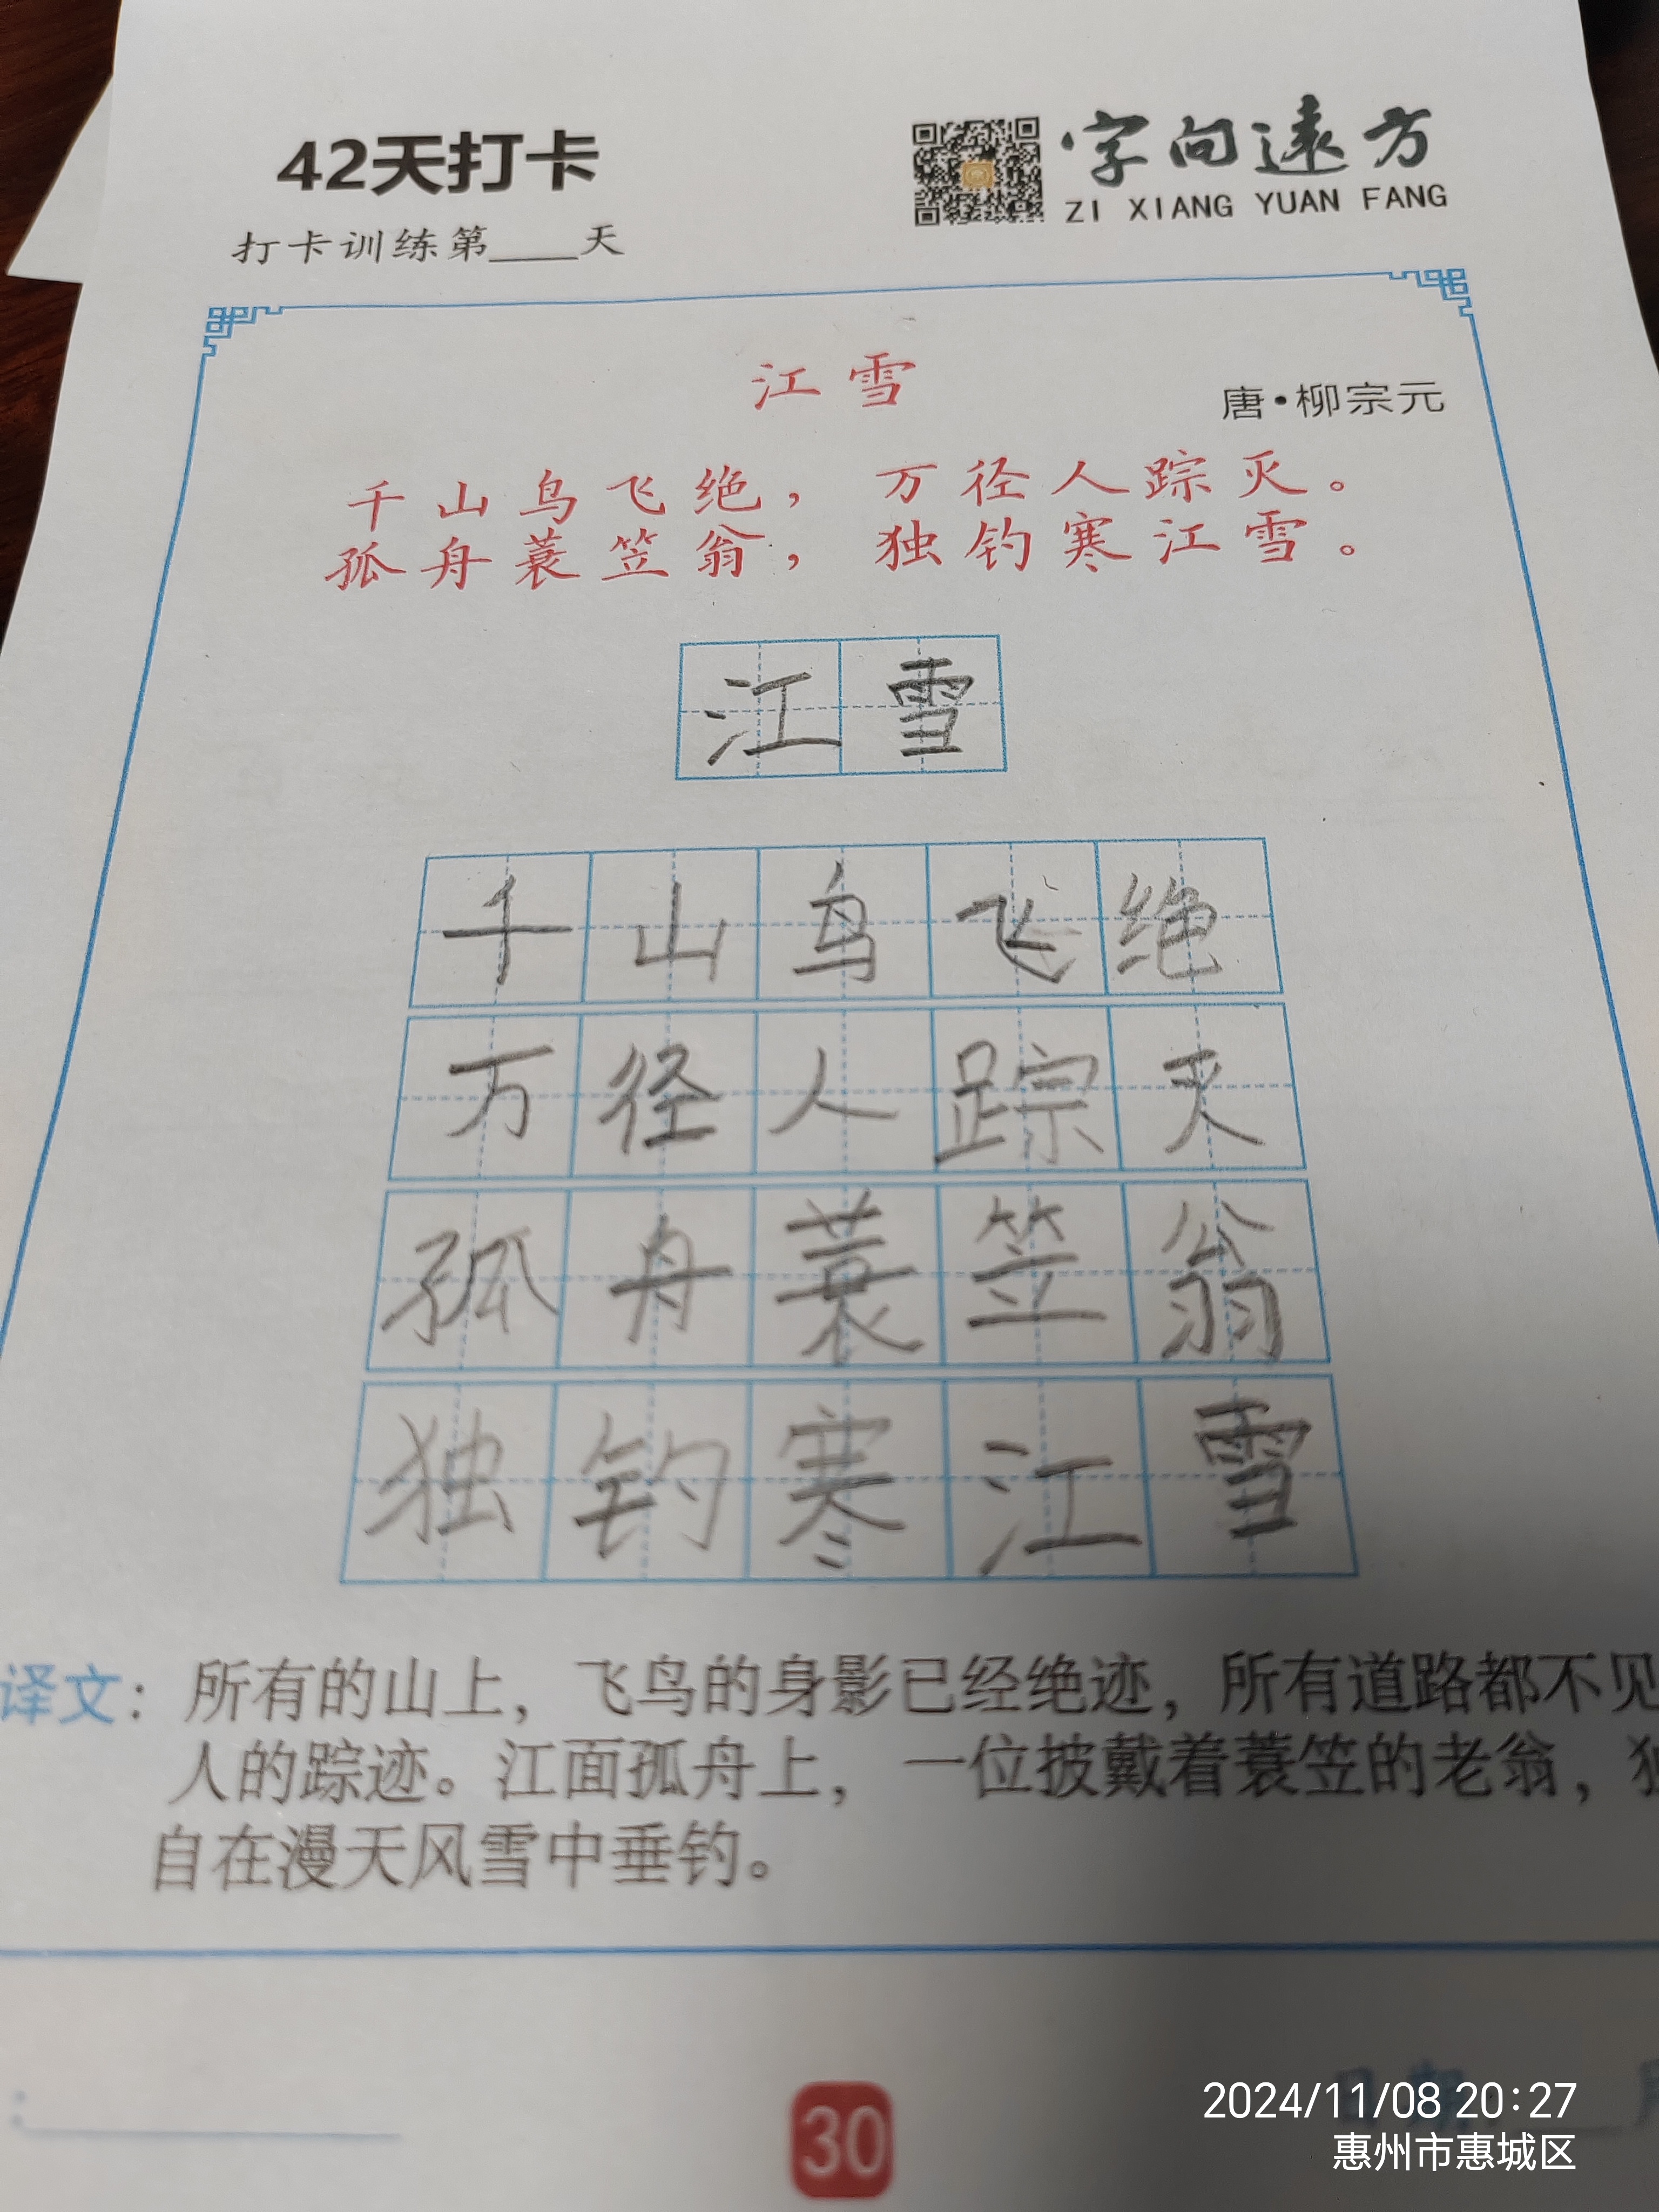 42天打卡
字向遠方
ZI XIANG YUAN FANG
打卡训练第____天
江雪
唐·柳宗元
千山鸟飞绝，万径人踪灭。
孤舟蓑笠翁，独钓寒江雪。
江雪
千山鸟飞绝
万径人踪灭
孤舟蓑笠翁
独钓寒江雪
译文：所有的山上，飞鸟的身影已经绝迹，所有道路都不见
人的踪迹。江面孤舟上，一位披戴着蓑笠的老翁，独
自在漫天风雪中垂钓。
30
2024/11/08 20:27
惠州市惠城区